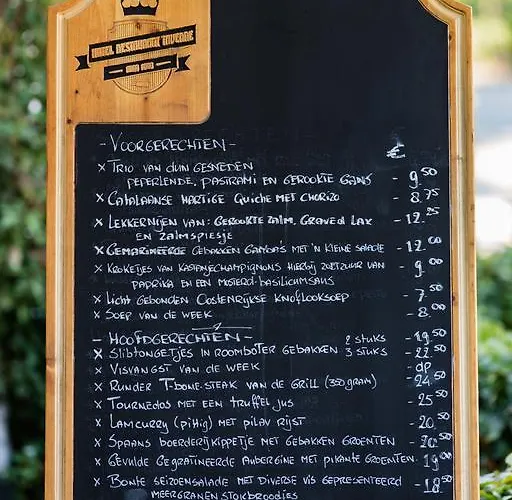 HOTEL RESTAURANT TAVERNE
-VOORGERECHTEN- €
x TRIO VAN DUN GESNEDEN
PEPERLENDE, PASTRAMI EN GEROOKTE GANS - 9.50
x CATALAANSE HARTIGE QUICHE MET CHORIZO - 8.75
x LEKKERNIJEN VAN: GEROOKTE ZALM, GRAVED LAX - 12.25
EN ZALMSPIESJE
x GEMARINEERDE GEBAKKEN GAMBA'S MET 'N KLEINE SALADE - 12.00
x KROKETJES VAN KASTANJECHAMPIGNONS HIERBIJ ZOETZUUR VAN - 9.00
PAPRIKA EN EEN MOSTERD-BASILICUMSAUS
x LICHT GEBONDEN OOSTENRIJKSE KNOFLOOKSOEP - 7.50
x SOEP VAN DE WEEK - 8.00
- HOOFDGERECHTEN - 2 STUKS - 19.50
x SLIBTONGETJES IN ROOMBOTER GEBAKKEN 3 STUKS - 22.50
x VISVANGST VAN DE WEEK - DP
x RUNDER T-BONE-STEAK VAN DE GRILL (350 GRAM) - 24.50
x TOURNEDOS MET EEN TRUFFEL JUS - 25.50
x LAMCURRY (PITTIG) MET PILAV RIJST - 20.50
x SPAANS BOERDERIJKIPPETJE MET GEBAKKEN GROENTEN - 20.50
x GEVULDE GEGRATINEERDE AUBERGINE MET PIKANTE GROENTEN - 19.00
x BONTE SEIZOENSALADE MET DIVERSE VIS GEPRESENTEERD - 18.50
MEERGRANEN STOKBROODJES